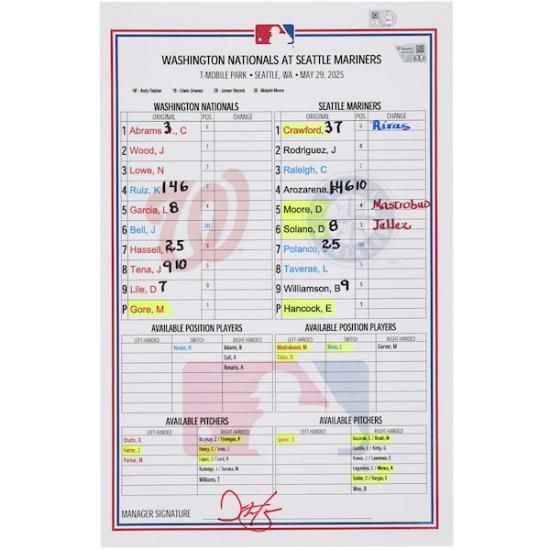 WASHINGTON NATIONALS AT SEATTLE MARINERS
T-MOBILE PARK • SEATTLE, WA • MAY 29, 2025
HP - Andy Fletcher 1B - Edwin Jimenez 2B - Junior Valentine 3B - Malachi Moore
WASHINGTON NATIONALS SEATTLE MARINERS
ORIGINAL POS. CHANGE ORIGINAL POS. CHANGE
1 Abrams, C 6 1 Crawford, 37 6 Rivas
2 Wood, J 7 2 Rodriguez, J 8
3 Lowe, N 3 3 Raleigh, C 2
4 Ruiz, K 146 2 4 Arozarena, 14610
5 Garcia, L 8 4 5 Moore, D 4 Mastrobuo
6 Bell, J DH 6 Solano, D 8 3 Tellez
7 Hassell, 25 7 Polanco, 25 DH
8 Tena, J 910 8 Taveras, L
9 Lile, D 7 9 Williamson, B 9 5
P Gore, M 1 P Hancock, E 1
AVAILABLE POSITION PLAYERS AVAILABLE POSITION PLAYERS
LEFT-HANDED SWITCH RIGHT-HANDED LEFT-HANDED SWITCH RIGHT-HANDED
Nunez, N Adams, R Mastrobuoni, M Rivas, L Garver, M
Call, A Tellez, R
Rosario, A
AVAILABLE PITCHERS AVAILABLE PITCHERS
LEFT-HANDED RIGHT-HANDED LEFT-HANDED RIGHT-HANDED
Chafin, A Brzykcy, Z / Finnegan, K Speier, G Bazardo, E / Brash, M
Ferrer, J Henry, C / Irvin, J Castillo, L / Kirby, G
Parker, M Lopez, J / Lord, B Kowar, J / Lawrence, C
Rutledge, J / Soroka, M Legumina, C / Munoz, A
Williams, T Snider, C / Vargas, C
Woo, B
MANAGER SIGNATURE